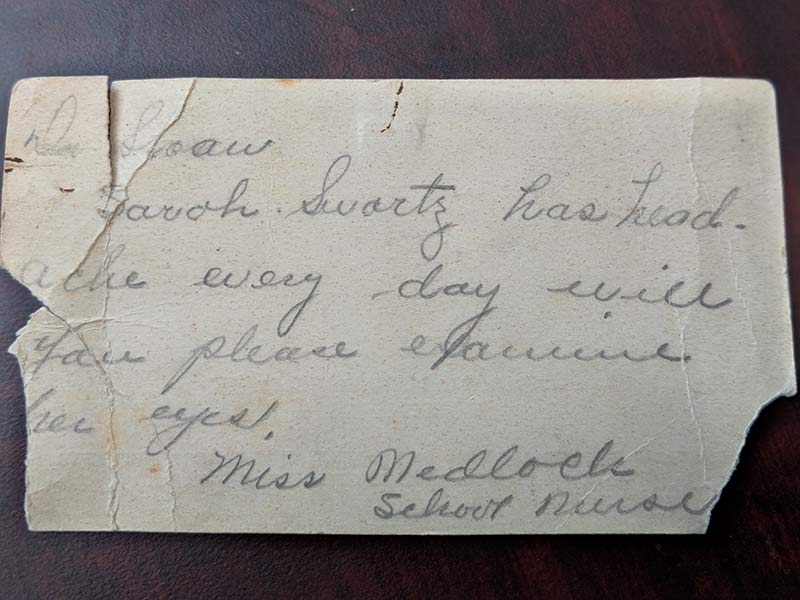 Dr Sloan
Sarah Swartz has head-
ache every day will
you please examine
her eyes.
Miss Medlock
School Nurse